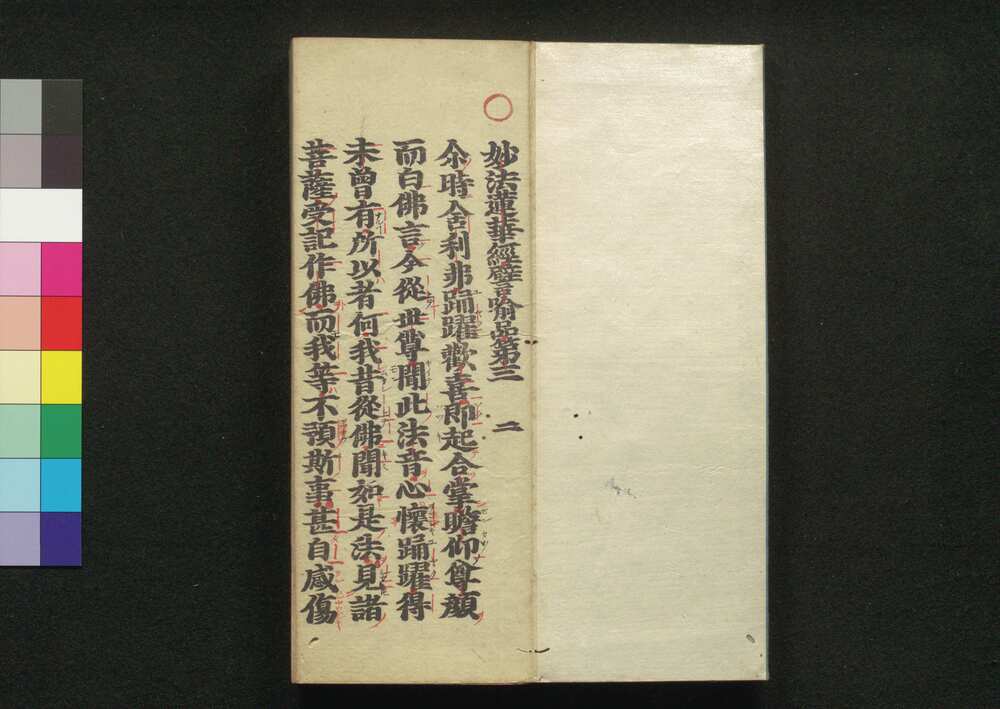 妙法蓮華經譬喻品第三 二
尒時舍利弗踊躍歡喜即起合掌瞻仰尊顔
而白佛言今從世尊聞此法音心懷踊躍得
未曾有所以者何我昔從佛聞如是法見諸
菩薩受記作佛而我等不預斯事甚自感傷